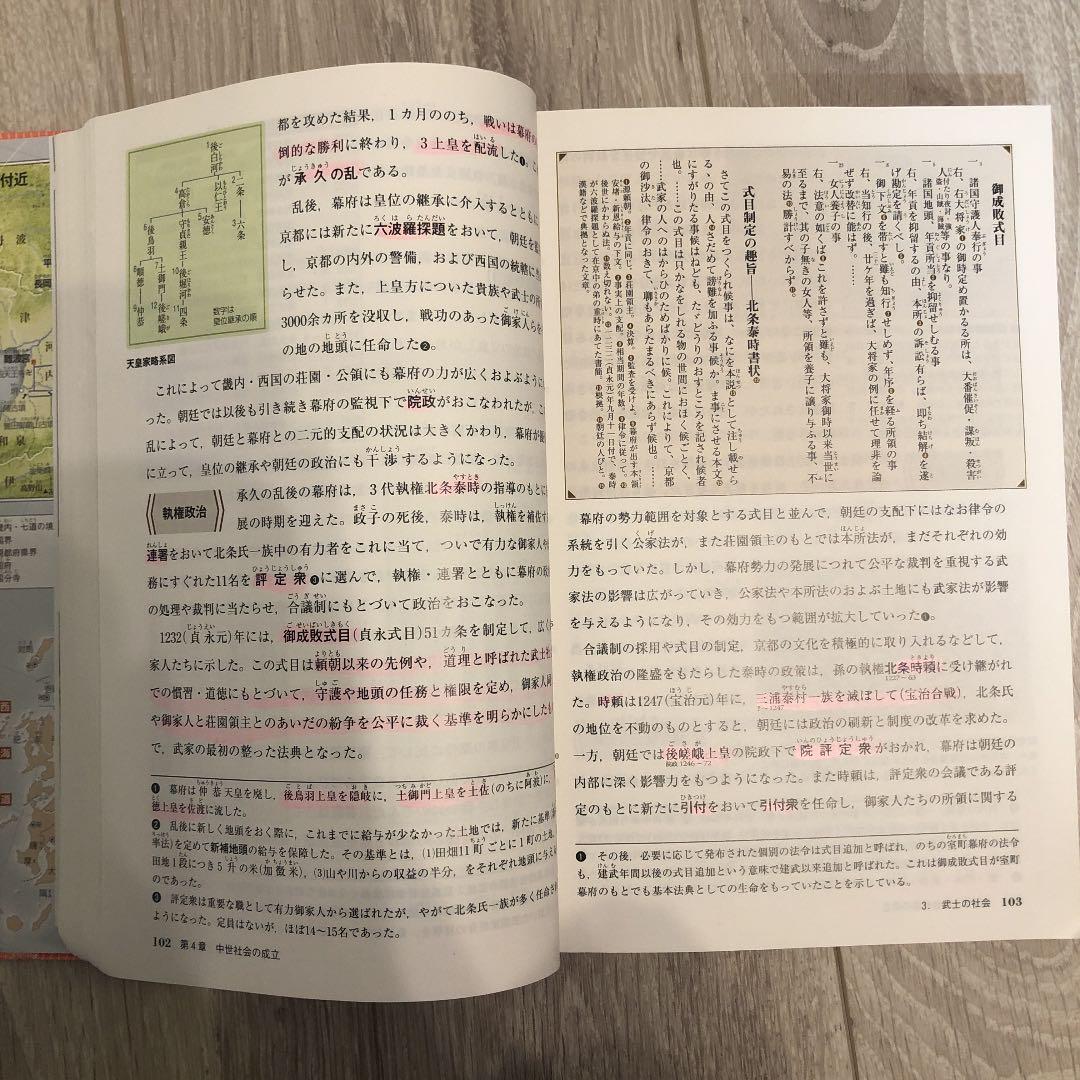 都を攻めた結果，1ヵ月ののち，戦いは幕府の
倒的な勝利に終わり，3上皇を配流した❶。こ
が承久の乱である。
乱後，幕府は皇位の継承に介入するとともに
京都には新たに六波羅探題をおいて，朝廷を
し，京都の内外の警備，および西国の統轄に
らせた。また，上皇方についた貴族や武士の所
3000余ヵ所を没収し，戦功のあった御家人らを
の地の地頭に任命した❷。
後白河
二条
六条
以仁王
高倉
安徳
守貞親王
後堀河
四条
後鳥羽
土御門
後嵯峨
順徳
仲恭
数字は
皇位継承の順
天皇家略系図
これによって畿内・西国の荘園・公領にも幕府の力が広くおよぶように
った。朝廷では以後も引き続き幕府の監視下で院政がおこなわれたが，こ
乱によって，朝廷と幕府との二元的支配の状況は大きくかわり，幕府が
に立って，皇位の継承や朝廷の政治にも干渉するようになった。
執権政治
承久の乱後の幕府は，3代執権北条泰時の指導のもとに
展の時期を迎えた。政子の死後，泰時は，執権を補佐す
連署をおいて北条氏一族中の有力者をこれに当て，ついで有力な御家人や
務にすぐれた11名を評定衆❸に選んで，執権・連署とともに幕府の
の処理や裁判に当たらせ，合議制にもとづいて政治をおこなった。
1232(貞永元)年には，御成敗式目(貞永式目)51ヵ条を制定して，広く
家人たちに示した。この式目は頼朝以来の先例や，道理と呼ばれた武士社
での慣習・道徳にもとづいて，守護や地頭の任務と権限を定め，御家人
や御家人と荘園領主とのあいだの紛争を公平に裁く基準を明らかにしたも
で，武家の最初の整った法典となった。
❶ 幕府は仲恭天皇を廃し，後鳥羽上皇を隠岐に，土御門上皇を土佐(のちに阿波)に，
徳上皇を佐渡に流した。
❷ 乱後に新しく地頭をおく際に，これまでに給与が少なかった土地では，新たに基準(
率法)を定めて新補地頭の給与を保障した。その基準とは，(1)田畑11町ごとに1町の土地，
田地1段につき5升の米(加徴米)，(3)山や川からの収益の半分，をそれぞれ地頭に与える
のであった。
❸ 評定衆は重要な職として有力御家人から選ばれたが，やがて北条氏一族が多く任命さ
ようになった。定員はないが，ほぼ14〜15名であった。
102 第4章 中世社会の成立
御成敗式目
一 諸国守護人奉行の事
右，右大将家❶の御時定め置かるる所は，大番催促・謀叛・殺害
人付たり夜討・強盗・山賊・海賊等の事なり。
一 諸国地頭，年貢所当❷を抑留せしむる事
右，年貢を抑留するの由，本所❸の訴訟有らば，即ち結解❹を遂
げ勘定を請くべし❺。
一 御下文❻を帯すと雖も知行❼せしめず，年序❽を経る所領の事
右，当知行の後，廿ヶ年を過ぎば，大将家の例に任せて理非を論
ぜず改替に能はず。……
一 女人養子の事
右，法意の如くば❾これを許さずと雖も，大将家御時以来当世に
至るまで，其の子無きの女人等，所領を養子に譲り与ふる事，不
易の法❿勝計すべからず⓫。
式目制定の趣旨——北条泰時書状⓬
さてこの式目をつくられ候事は，なにを本説⓭として注し載せら
るゝの由，人⓮さだめて謗難を加ふる事候か。ま事にさせる本文
にすがりたる事候はねども，たゞどうりのおすところを記され候者
也。……この式目は只かなをしれる物の世間におほく候ごとく，
……武家の人へのはからひのためばかりに候。これによりて，京都
の御沙汰，律令のおきて，聊もあらたまるべきにあらず候也。……
❶源頼朝。❷年貢に同じ。❸荘園領主。❹決算。❺監査を受けよ。❻幕府が出す本領
安堵・新恩給与の下文。❼事実上の支配。❽相当期間の年数。❾律令に従って。❿
後世にかわらぬ法。⓫数え切れない。⓬一二三二(貞永元)年九月十一日付で，泰時
が六波羅探題として在京中の弟の重時にあてた書簡。⓭根拠。⓮朝廷の人びと。⓯
漢籍などで典拠となった文章。
幕府の勢力範囲を対象とする式目と並んで，朝廷の支配下にはなお律令の
系統を引く公家法が，また荘園領主のもとでは本所法が，まだそれぞれの効
力をもっていた。しかし，幕府勢力の発展につれて公平な裁判を重視する武
家法の影響は広がっていき，公家法や本所法のおよぶ土地にも武家法が影響
を与えるようになり，その効力をもつ範囲が拡大していった❶。
合議制の採用や式目の制定，京都の文化を積極的に取り入れるなどして，
執権政治の隆盛をもたらした泰時の政策は，孫の執権北条時頼に受け継がれ
1227〜63
た。時頼は1247(宝治元)年に，三浦泰村一族を滅ぼして(宝治合戦)，北条氏
?〜1247
の地位を不動のものとすると，朝廷には政治の刷新と制度の改革を求めた。
一方，朝廷では後嵯峨上皇の院政下で院評定衆がおかれ，幕府は朝廷の
院政1246〜72
内部に深く影響力をもつようになった。また時頼は，評定衆の会議である評
定のもとに新たに引付をおいて引付衆を任命し，御家人たちの所領に関する
❶ その後，必要に応じて発布された個別の法令は式目追加と呼ばれ，のちの室町幕府の法令
も，建武年間以後の式目追加という意味で建武以来追加と呼ばれた。これは御成敗式目が室町
幕府のもとでも基本法典としての生命をもっていたことを示している。
3. 武士の社会 103
付近